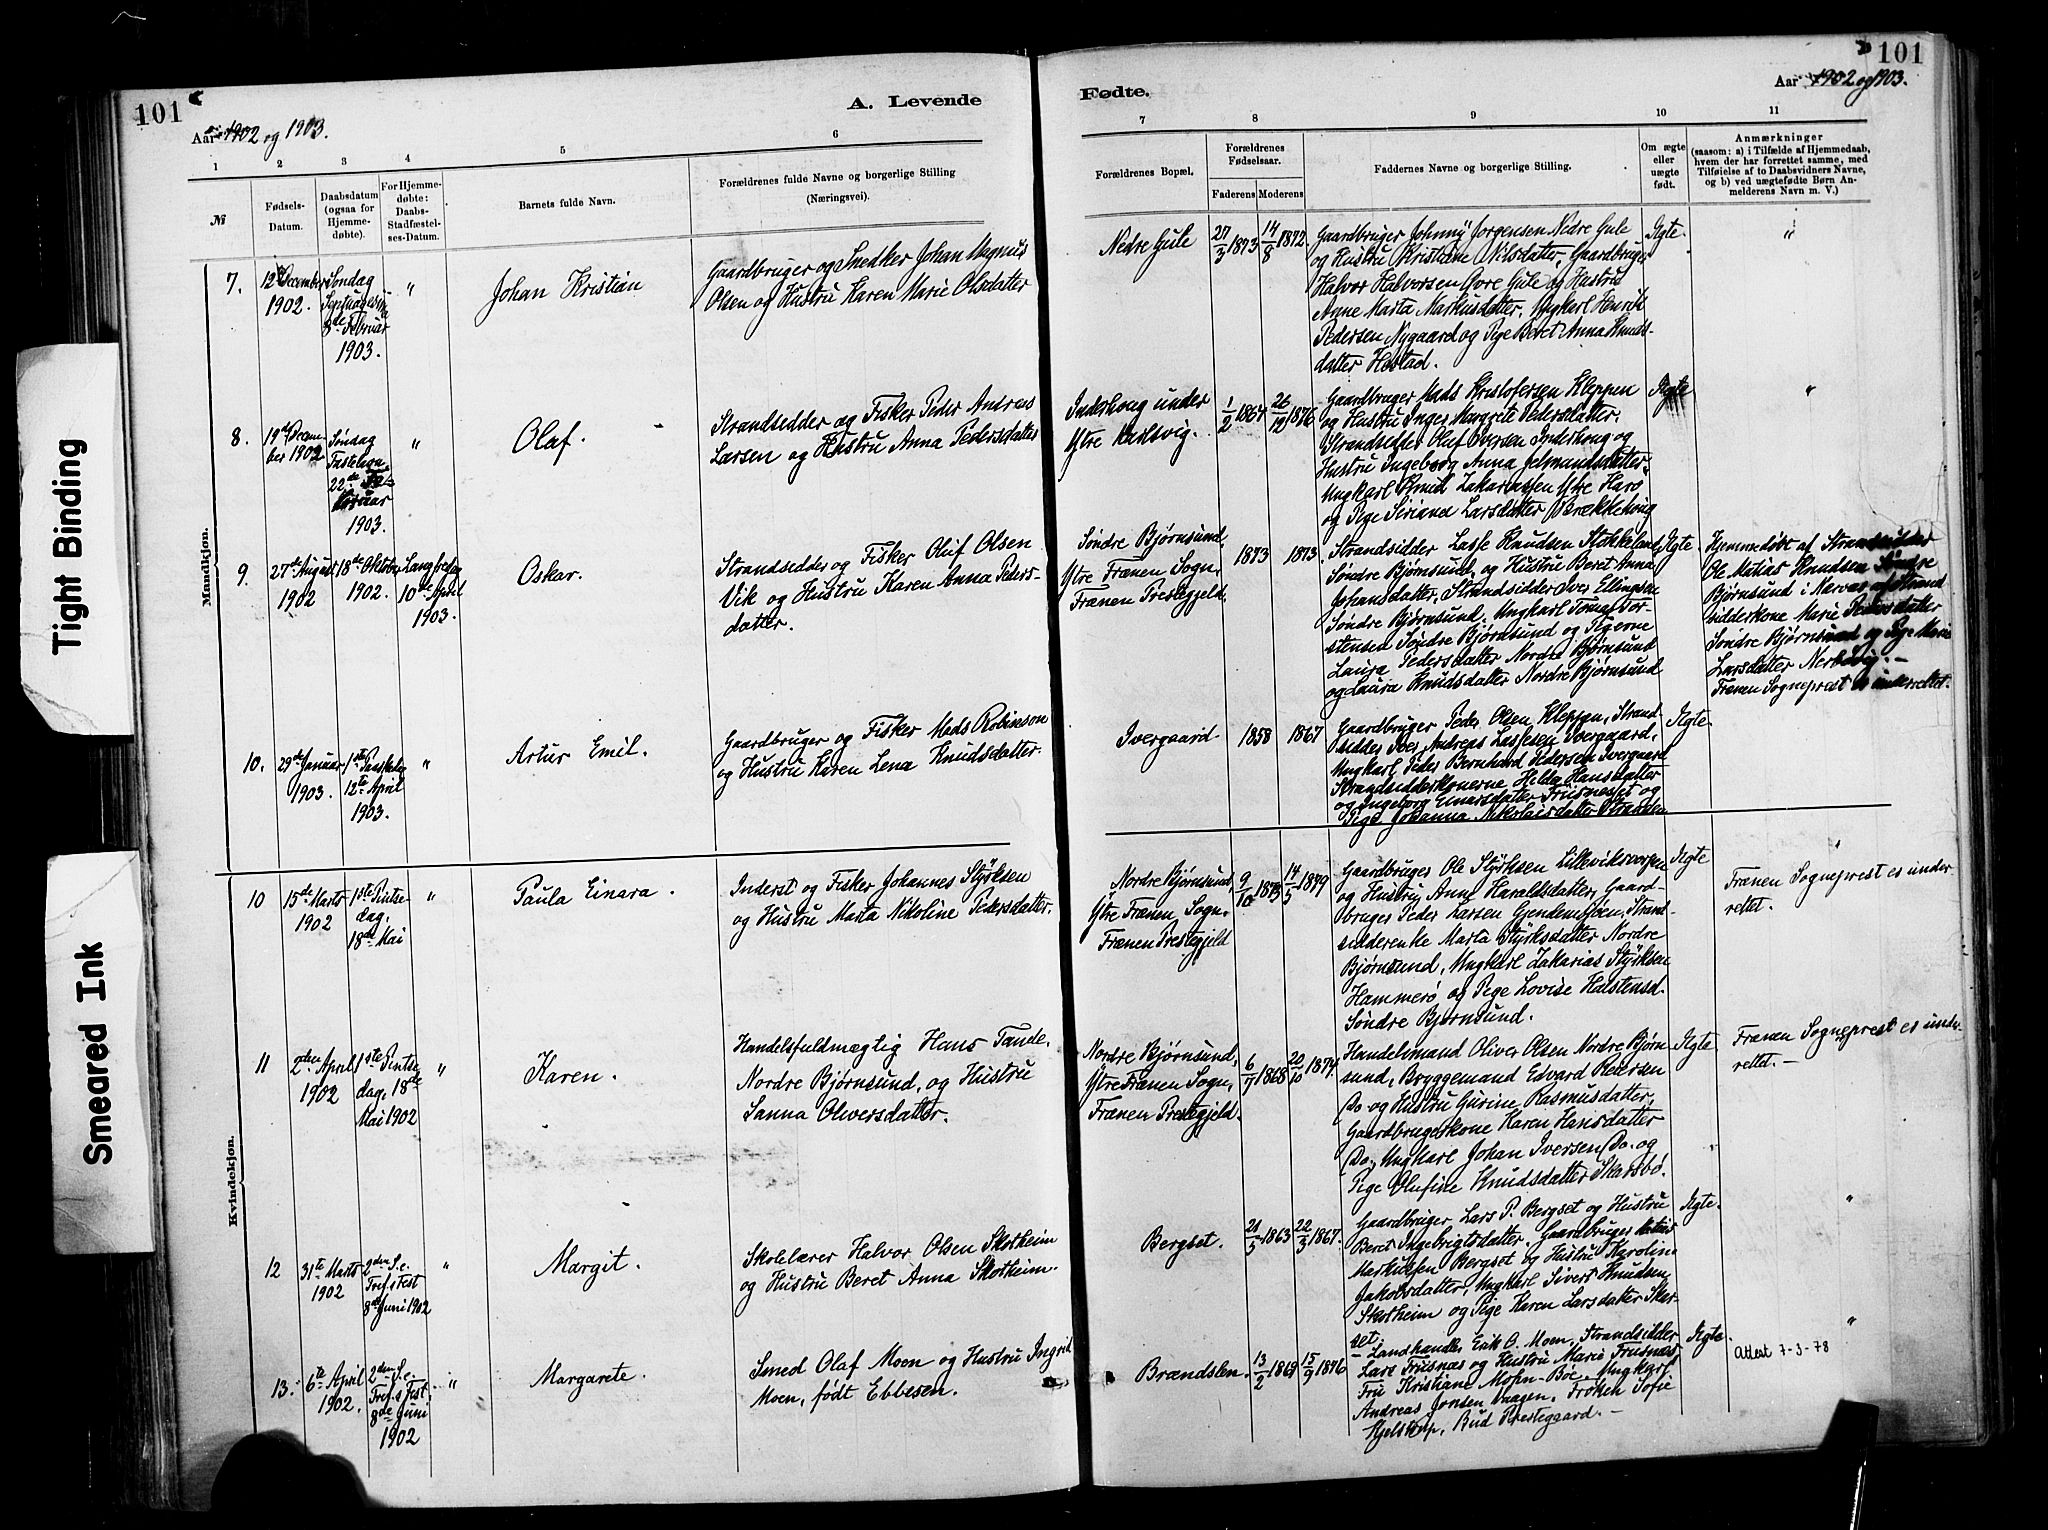 101
A. Levende
Aar 1902 og 1903.
1 2 3 4 5 6
№
Fødsels-
Datum.
Daabsdatum
(ogsaa for
Hjemme-
døbte).
For Hjemme-
døbte:
Daabs-
Stadfæstel-
ses-Datum.
Barnets fulde Navn.
Forældrenes fulde Navne og borgerlige Stilling
(Næringsvei).
Mandkjøn.
7.
12te December
1902.
Søndag
Septuagesima
8de Februar
1903.
"
Johan Kristian
Gaardbruger og Snedker Johan Magnus
Olsen og Hustru Karen Marie Olsdatter
8.
19de Decem-
ber 1902
Søndag
Fastelavn
22de Fe-
bruar
1903.
"
Olaf.
Strandsidder og Fisker Peder Andreas
Larsen og Hustru Anna Pedersdatter
9.
27de August
1902
18de Oktober
1902.
Langfredag
10de April
1903.
Oskar.
Strandsidder og Fisker Oluf Olsen
Vik og Hustru Karen Anna Peders-
datter.
10.
29de Januar
1903.
1ste Paaskedag
12te April
1903.
"
Artur Emil.
Gaardbruger og Fisker Mads Robinson
og Hustru Karen Lena Knudsdatter.
Kvindekjøn.
10
15de Marts
1902
1ste Pintse-
dag,
18de Mai
"
Paula Einara.
Inderst og Fisker Johannes Styrksen
og Hustru Marta Nikoline Pedersdatter.
11
2den April
1902
1ste Pintse
dag, 18de
Mai 1902
"
Karen.
Handelsfuldmægtig Hans Tande,
Nordre Bjørnsund, og Hustru
Sanna Oliversdatter.
12
31te Marts
1902
2den S.e.
Tref.s Fest
8de Juni 1902
"
Margit.
Skolelærer Halvor Olsen Skotheim
og Hustru Beret Anna Skotheim.
13.
6te April
1902.
2den S.e.
Tref.s Fest
8de Juni
1902
"
Margarete.
Smed Olaf Moen og Hustru Ingrid
Moen, født Ebbesen.
101
Fødte.
Aar 1902 og 1903.
7 8 9 10 11
Forældrenes Bopæl.
Forældrenes
Fødselsaar.
Faderens Moderens
Faddernes Navne og borgerlige Stilling.
Om ægte
eller
uægte
født.
Anmærkninger
(saasom: a) i Tilfælde af Hjemmedaab,
hvem der har forrettet samme, med
Tilføielse af to Daabsvidners Navne,
og b) ved uægtefødte Børn An-
melderens Navn m. V.)
Nedre Gule
27/3 1873
14/8 1872
Gaardbruger Johnny Jørgensen Nedre Gule
og Hustru Kristiane Nilsdatter, Gaardbruger
Halvor Halvorsen Øvre Gule og Hustru
Anne Marta Markusdatter, Ungkarl Henrik
Pedersen Nygaard og Pige Beret Anna Knuds-
datter Hostad.
Ægte
"
Inderhoug under
Ytre Karlsvig.
1/2 1867
26/12 1876
Gaardbruger Mads Kristofersen Kleppen
og Hustru Inger Margrete Pedersdatter,
Strandsidder Oluf Iversen Inderhoug og
Hustru Ingeborg Anna
Ungkarl Knud Zakariassen Ytre Harø
og Pige Larsdatter Brækkehoug
Ægte
"
Søndre Bjørnsund,
Ytre Frænen Sogn,
Frænen Prestegjeld.
1873
1873.
Strandsidder Lasse Knudsen Stokkeland
Søndre Bjørnsund, og Hustru Beret Anna
Johansdatter, Strandsidder Iver Ellingsen
Søndre Bjørnsund, Ungkarl Tomas Tor-
stensen Søndre Bjørnsund og Pigerne
Laura Pedersdatter Nordre Bjørnsund
og Laura Knudsdatter Nordre Bjørnsund
Ægte
Hjemmedøbt af Strandsidder
Ole Matias Knudsen Søndre
Bjørnsund i Nærvær af Strand
sidderkone Marie Pedersdatter
Søndre Bjørnsund og Pige Marie
Larsdatter Nerbøvig.—
Frænen Sogneprest er underrettet.
Ivergaard
1858
1867
Gaardbruger Peder Olsen Kleppen, Strand-
sidder Iver Andreas Lassesen Ivergaard,
Ungkarl Peder Bernhard Pedersen Ivergaard
Strandsidderkonerne Helda Hansdatter
og Ingeborg Einarsdatter Frusneset og
Pige Johanna Nikolaisdatter Stranden
Ægte
"
Nordre Bjørnsund,
Ytre Frænen Sogn,
Frænen Prestegjeld
9/10 1873
14/5 1879
Gaardbruger Ole Styrksen Lilleviksvorpen
og Hustru Anne Haraldsdatter, Gaard-
bruger Peder Larsen Gjendemsjøen, Strand-
sidderenke Marta Styrksdatter Nordre
Bjørnsund, Ungkarl Zakarias Styrksen
Hammerø og Pige Lovise Halstensd.
Søndre Bjørnsund.
Ægte
Frænen Sogneprest er under
rettet.
Nordre Bjørnsund,
Ytre Frænen Sogn,
Frænen Prestegjeld.
6/7 1868
20/10 1874.
Handelsmand Oliver Olsen Nordre Bjørn-
sund, Bryggemand Edvard Pedersen
Do. og Hustru Gurine Rasmusdatter,
Gaardbrugerkone Karen Hansdatter
Do., Ungkarl Johan Iversen Do. og
Pige Olufine Knudsdatter Skarsbø.
Ægte
Frænen Sogneprest er under-
rettet.—
Bergset.
21/5 1863
22/3 1867.
Gaardbruger Lars P. Bergset og Hustru
Beret Ingebrigtsdatter, Gaardbruger
Markussen Bergset og Hustru Karolin
Jakobsdatter, Ungkarl Sivert Knudsen
Skotheim og Pige Karen Larsdatter Sker-
set.
Ægte.
"
Brændslen.
13/2 1869
15/9 1876
Landhandler Erik O. Moen, Strandsidder
Lars Frusnæs og Hustru Marie Frusnæs
Fru Kristiane Mohn-Boe, Ungkarl
Andreas Jonsen Vaagen, Frøken Sofie
Hjelstrup, Bud Prestegaard.—
Ægte.
"
Attest 7-3-78
Tight Binding
Smeared Ink